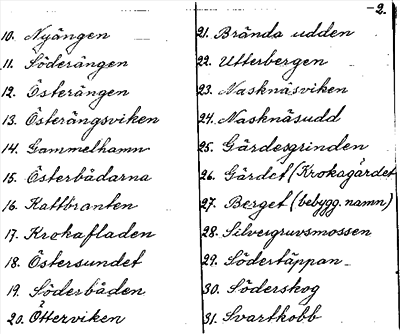 -2.
10. Nyängen
11. Söderängen
12. Österängen
13. Österängsviken
14. Gammelhamn
15. Österbådarna
16. Kattbranten
17. Krokafladen
18. Östersundet
19. Söderbåden
20. Ötterviken
21. Brända udden
22. Utterbergen
23. Nasknäsviken
24. Nasknäsudd
25. Gärdesgrinden
26. Gärdet (Krokagärdet
27. Berget (bebygg. namn)
28. Silvergruvsmossen
29. Södertäppan
30. Söderskog
31. Svartkobb